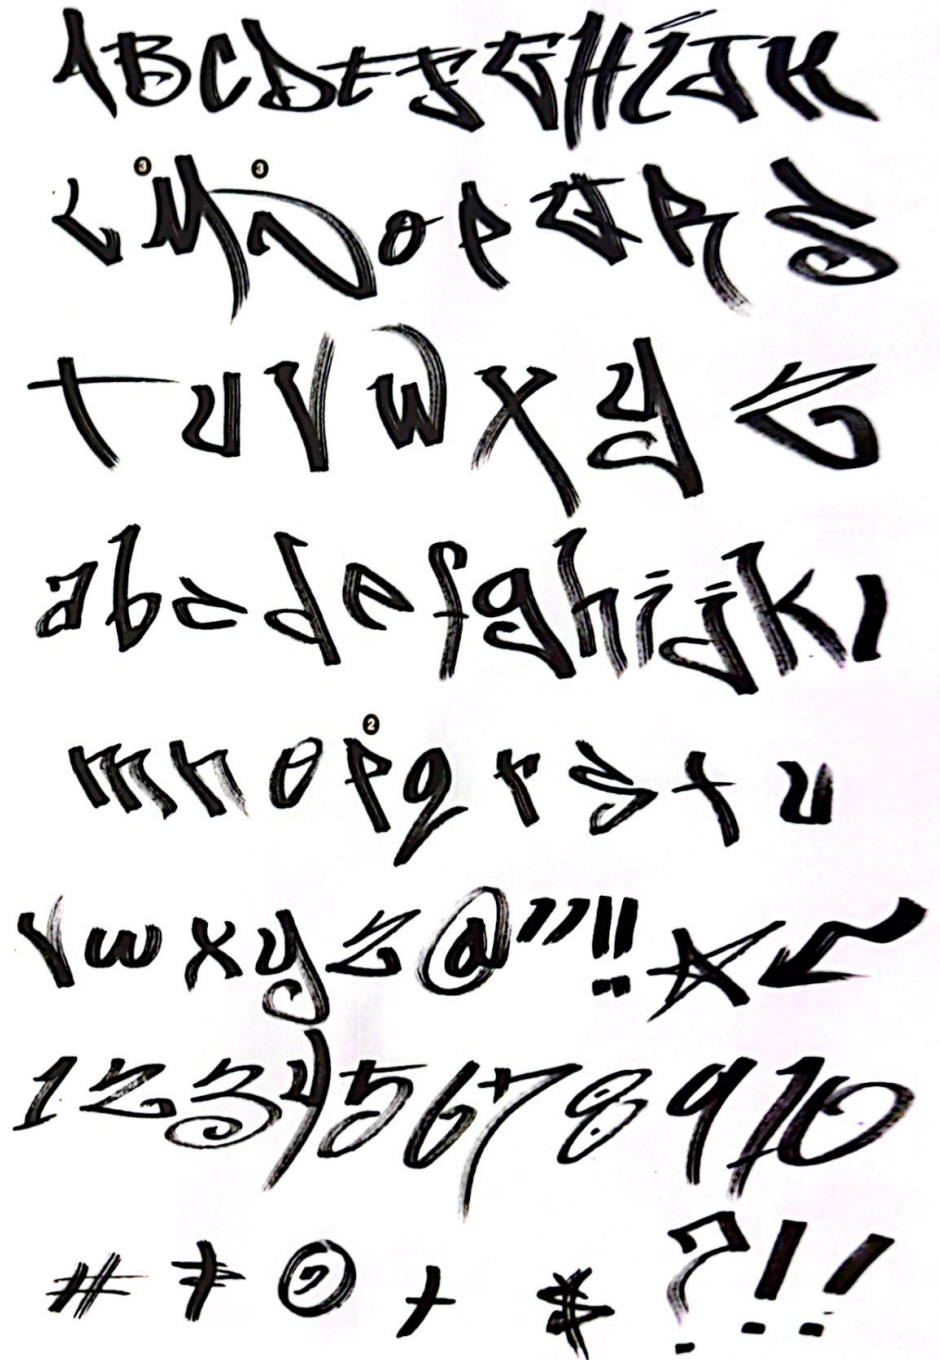 ABCDEFGHIJK
③ ③
LMNOPQRS
TUVWXYZ
abcdefghijkl
②
mnopqrstu
vwxyz@"!!
12345678910
# + $?!!